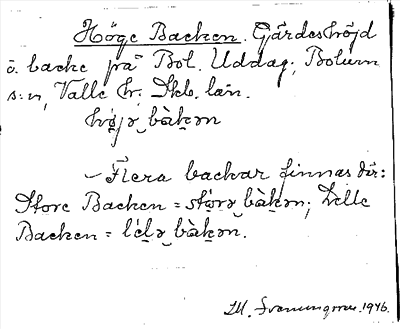 Höge Backen. Gärdeshöjd
o. backe på Bol. Uddag, Bolum
s:n, Valle hr. Skb. län.
hö̀jə bàkən
– Flera backar finnas där:
Store Backen = stórə bàkən; Lelle
Backen = lélə bàkən.
1946.